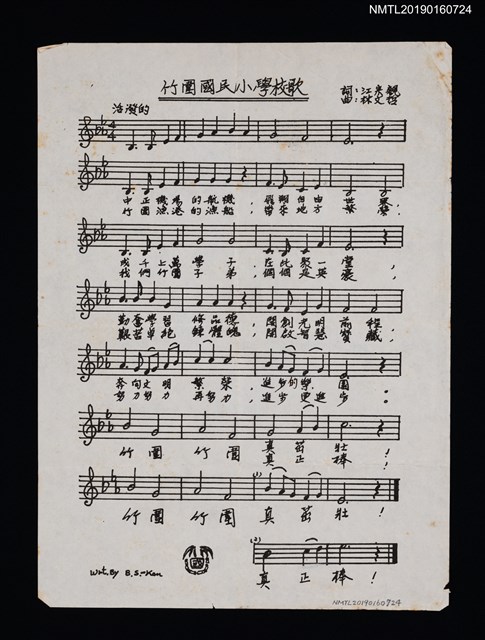 NMTL20190160724
竹圍國民小學校歌
詞:江
曲:林文
活潑的
4 4
中正機場的航機,翱翔自由世界,
竹圍漁港的漁船,帶來地方繁榮,
成千上萬學子,在此聚一堂,
我們竹圍子弟,個個是英豪,
勤奮學習修品德,開創光明前程
艱苦卓絕,開啟智慧寶藏,
奔向文明繁榮,進步的樂園。
努力努力再努力,進步更進步。
竹圍竹圍真茁壯!
真正棒!
竹圍竹圍真茁壯!
真正棒!
Writ. By B.S.-Ken
NMTL20190160724